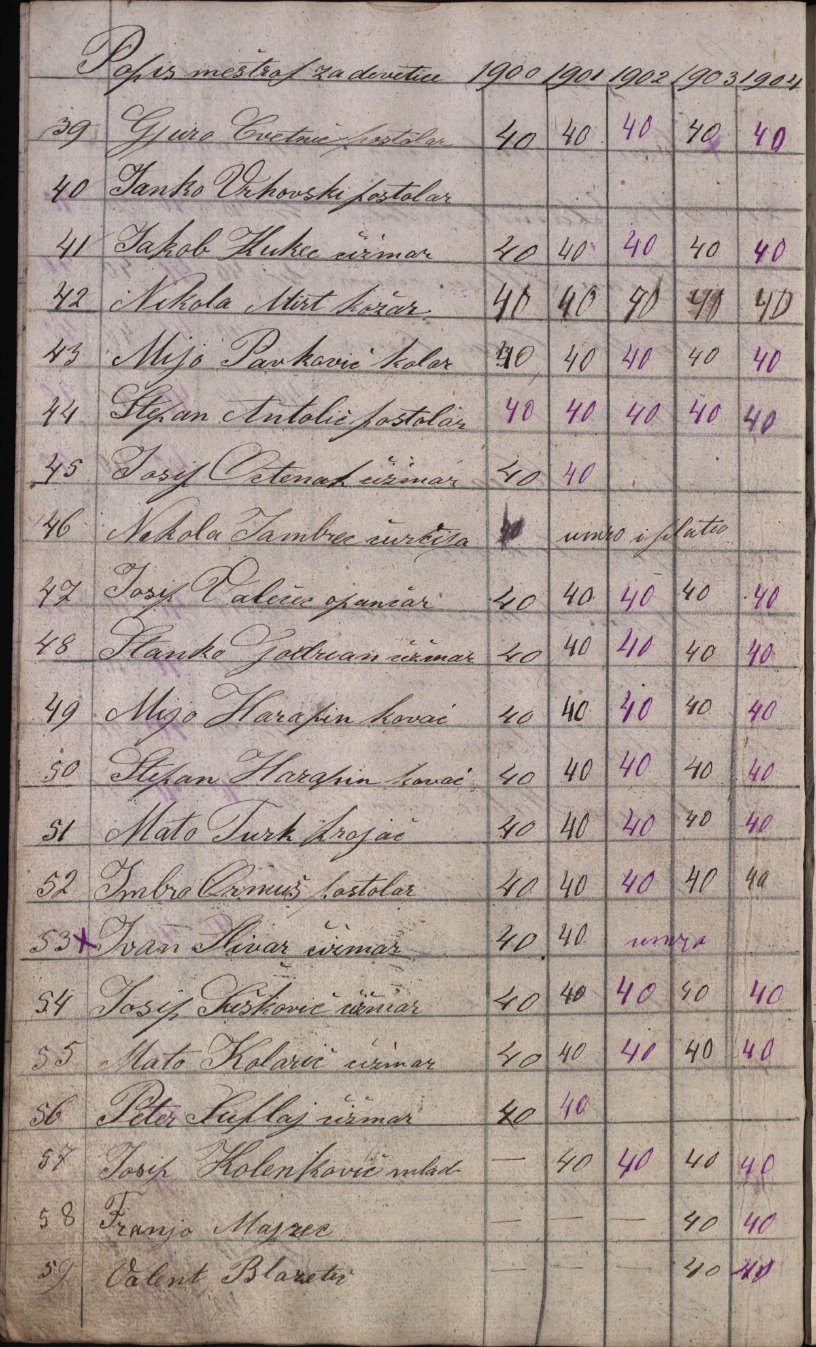 Popis meštrof za devetice 1900 1901 1902 1903 1904
39 Gjuro Cvetnić postolar 40 40 40 40 40
40 Janko Vrhovski postolar
41 Jakob Kukec čižmar 40 40 40 40 40
42 Nikola Mirt kožar 40 40 40 40 40
43 Mijo Pavković kolar 40 40 40 40 40
44 Stjepan Antolić postolar 40 40 40 40 40
45 Josip čižmar 40 40
46 Nikola Jambrec ćurčija 40 umro i platio
47 Josip opančar 40 40 40 40 40
48 Stanko čižmar 40 40 40 40 40
49 Mijo Harapin kovač 40 40 40 40 40
50 Stjepan Harapin kovač 40 40 40 40 40
51 Mato Turk krojač 40 40 40 40 40
52 Imbro Ormuš postolar 40 40 40 40 40
53 x Ivan Slivar čižmar 40 40 umro
54 Josip čižmar 40 40 40 40 40
55 Mato Kolarić čižmar 40 40 40 40 40
56 Peter Šuflaj čižmar 40 40
57 Josip Kolenković mlad — 40 40 40 40
58 Franjo Majzec — — — 40 40
59 Valent Blazetić — — — 40 40